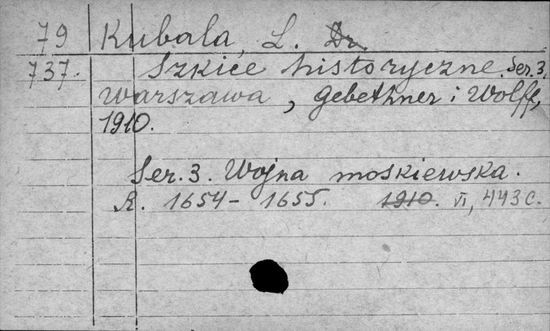 79 Kubala, L. Dr.
737. Szkice historyczne. Ser. 3,
Warszawa, Gebethner i Wolff,
1910.
Ser. 3. Wojna moskiewska.
R. 1654 - 1655. 1910. VI, 443 c.